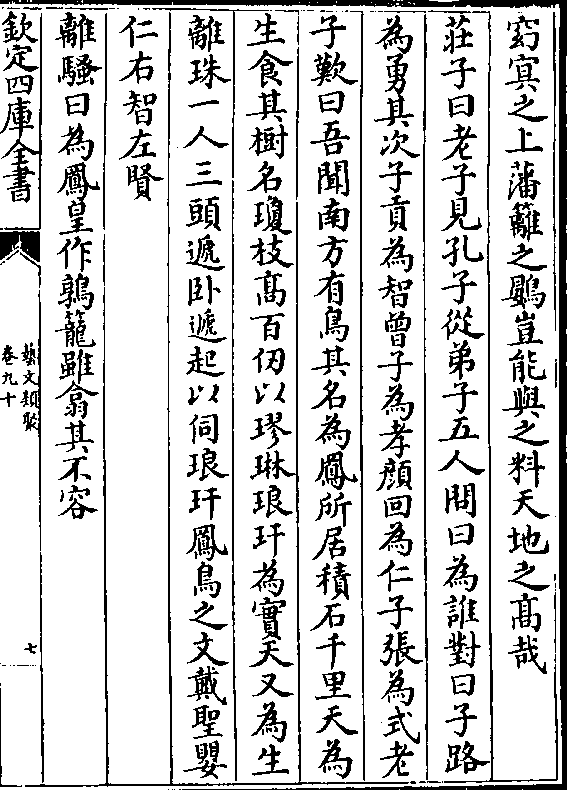 窈冥之上藩籬之鷃豈能與之料天地之髙哉
莊子曰老子見孔子從弟子五人問曰為誰對曰子路
為勇其次子貢為智曾子為孝顔回為仁子張為式老
子歎曰吾聞南方有鳥其名為鳳所居積石千里天為
生食其樹名瓊枝髙百仞以璆琳琅玕為實天又為生
離珠一人三頭遞卧遞起以伺琅玕鳳鳥之文戴聖嬰
仁右智左賢
離騷曰為鳳皇作鶉籠雖翕其不容
欽定四庫全書
藝文類聚
卷九十
七